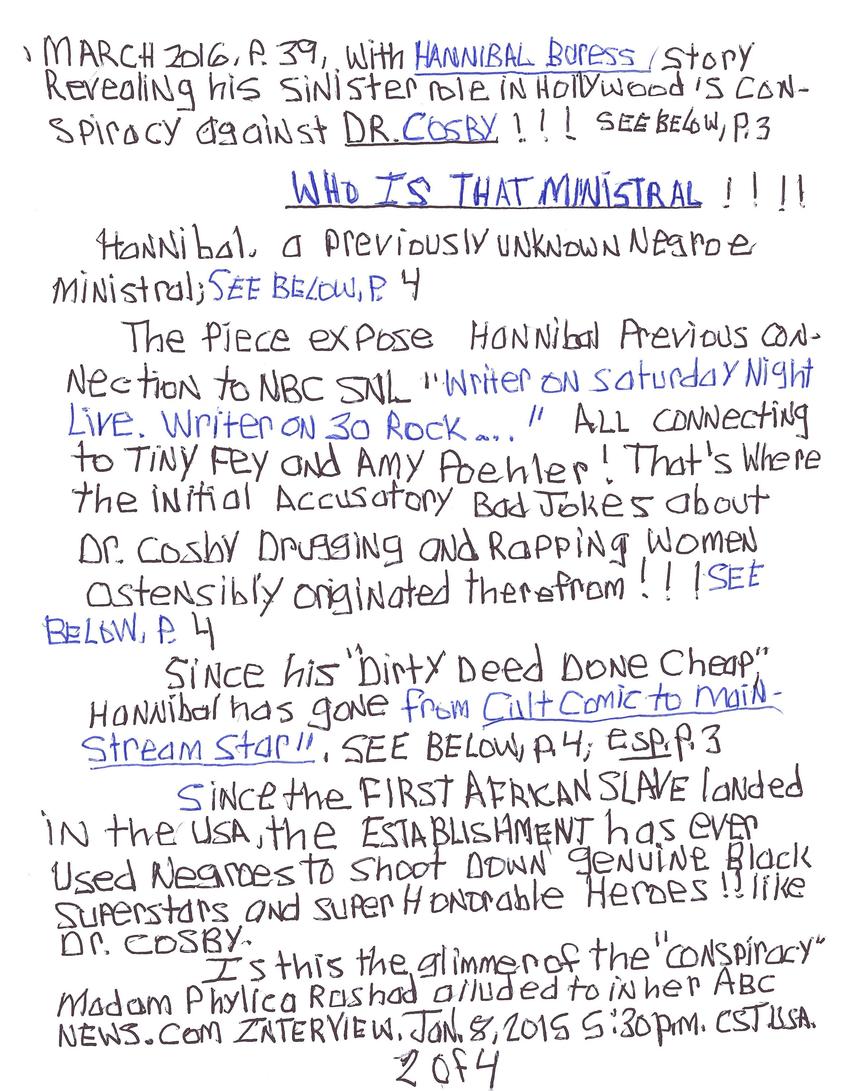 ) MARCH 2016, P. 39, With HANNIBAL Buress / Story
Revealing his SiNister role in Hollywood's CON-
Spiracy against DR. COSBY ! ! ! SEE BELOW, P. 3
WHO IS THAT MINISTRAL ! ! ! !
HaNNibal, a Previously UNKNOWN Negroe
MiNistral; SEE BELOW, P. 4
The Piece exPose HaNNibal Previous CON-
Nection to NBC SNL "Writer ON Saturday Night
Live. Writer ON 30 Rock...." ALL CONNecting
to TiNy Fey and Amy Poehler! That's Where
the iNitial Accusatory Bad Jokes about
Dr. Cosby Drugging and Rapping Women
Ostensibly originated therefrom ! ! ! SEE
BELOW, P. 4
Since his "Dirty Deed DONE Cheap,"
HaNNibal has gone from Cult Comic to MaiN-
Stream Star". SEE BELOW, P. 4; esp. P. 3
SiNce the FIRST AFRICAN SLAVE landed
iN the USA, the ESTABLISHMENT has ever
Used Negroes to Shoot DOWN genuine Black
Superstars and super Honorable Heroes !! like
Dr. COSBY.
Is this the glimmer of the "CONSpiracy"
Madam Phylica Rashad alluded to in her ABC
NEWS.Com INTERVIEW, JAN. 8, 2015 5:30 P.M. CST USA.
2 of 4